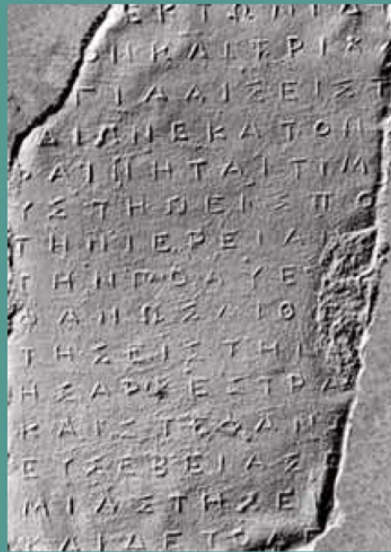 ΕΚΤΩΝΙΔΙ
ΟΝΚΑΙΠΡΙ
ΔΑΙΣΕΙΣΤ
ΔΙΩΝΕΚΑΤΟΝ
ΑΙΝΗΤΑΙΤΙΜ
ΥΣΤΗΝΕΙΣΠΟ
ΤΗΝΙΕΡΕΙΑΝ
ΤΗΝΠΟΛΥΕ
ΦΑΝΩΣΑΙΘ
ΤΗΣΕΙΣΤΗΝ
ΗΣΑΡΧΕΣΤΡΑ
ΚΑΙΣΤΕΦΑΝ
ΕΥΣΕΒΕΙΑΣ
ΜΙΑΣΤΗΣΕ
ΚΑΙΔΕΤΟΔΕ